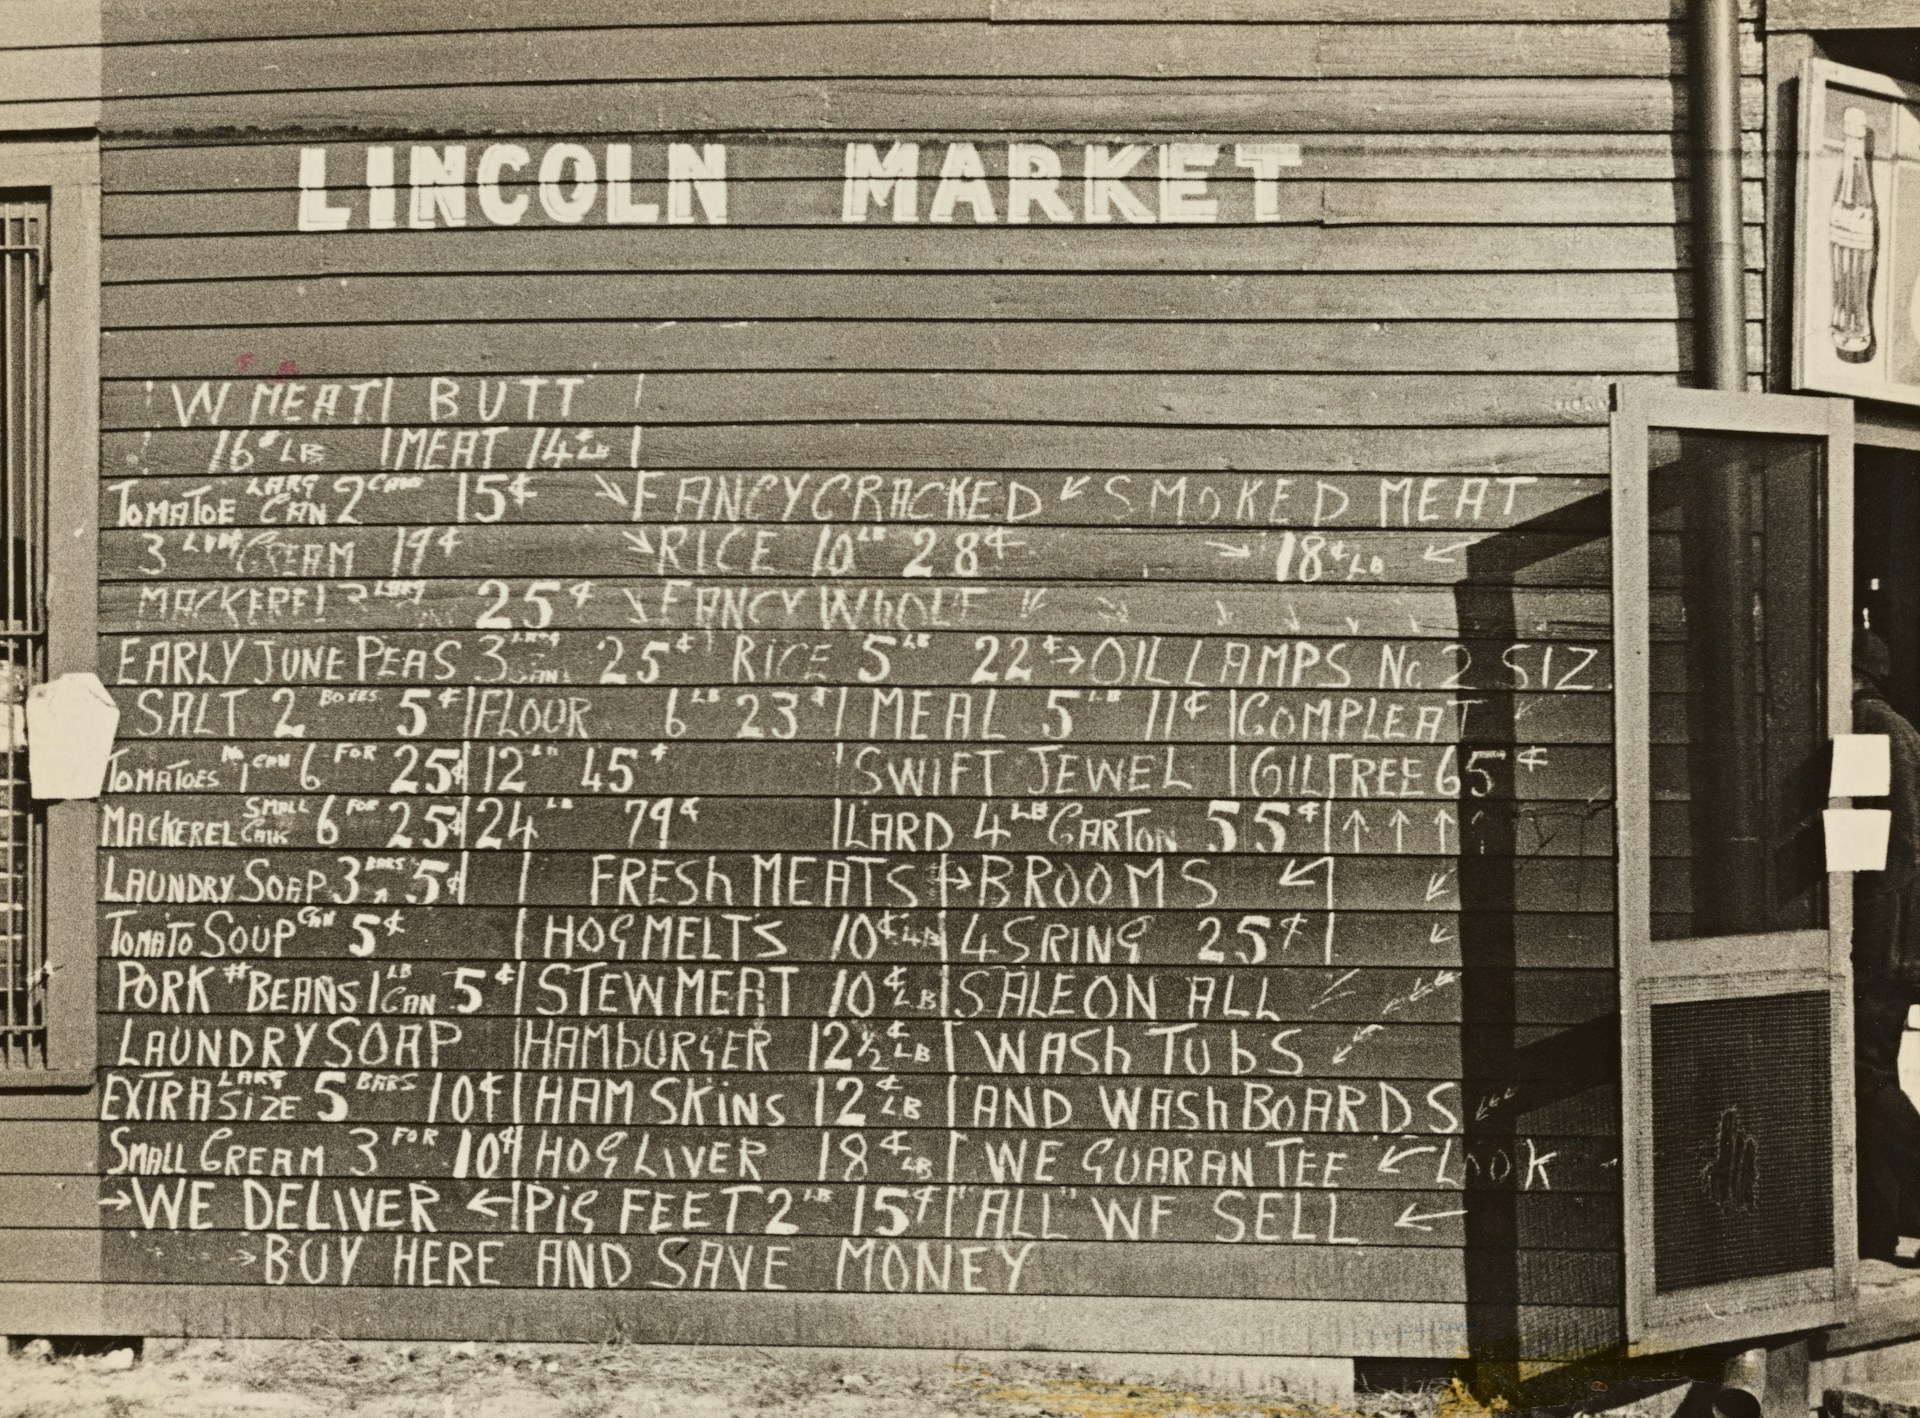 LINCOLN MARKET
W MEAT BUTT
16¢ LB MEAT 14¢ LB
TOMATOE LARG CAN 2 CANS 15¢ FANCY CRACKED SMOKED MEAT
3 CREAM 19¢ RICE 10 LB 28¢ 18¢ LB
MACKEREL 25¢ FANCY WHOLE
EARLY JUNE PEAS 3 CANS 25¢ RICE 5 LB 22¢ OIL LAMPS No. 2 SIZ
SALT 2 BOXES 5¢ FLOUR 6 LB 23¢ MEAL 5 LB 11¢ COMPLEAT
TOMATOES No 1 CAN 6 FOR 25¢ 12 LB 45¢ SWIFT JEWEL GILTREE 65¢
MACKEREL SMALL 6 FOR 25¢ 24 LB 79¢ LARD 4 LB CARTON 55¢
LAUNDRY SOAP 3 BARS 5¢ FRESH MEATS BROOMS
TOMATO SOUP CAN 5¢ HOG MELT'S 10¢ LB 4 SRING 25¢
PORK # BEANS 1 LB CAN 5¢ STEW MEAT 10¢ LB SALE ON ALL
LAUNDRY SOAP HAMBURGER 12½¢ LB WASH TUBS
EXTRA LARG SIZE 5 BARS 10¢ HAM SKINS 12¢ LB AND WASH BOARDS
SMALL CREAM 3 FOR 10¢ HOG LIVER 18¢ LB WE GUARANTEE LOOK
WE DELIVER PIG FEET 2 LB 15¢ "ALL" WE SELL
BUY HERE AND SAVE MONEY